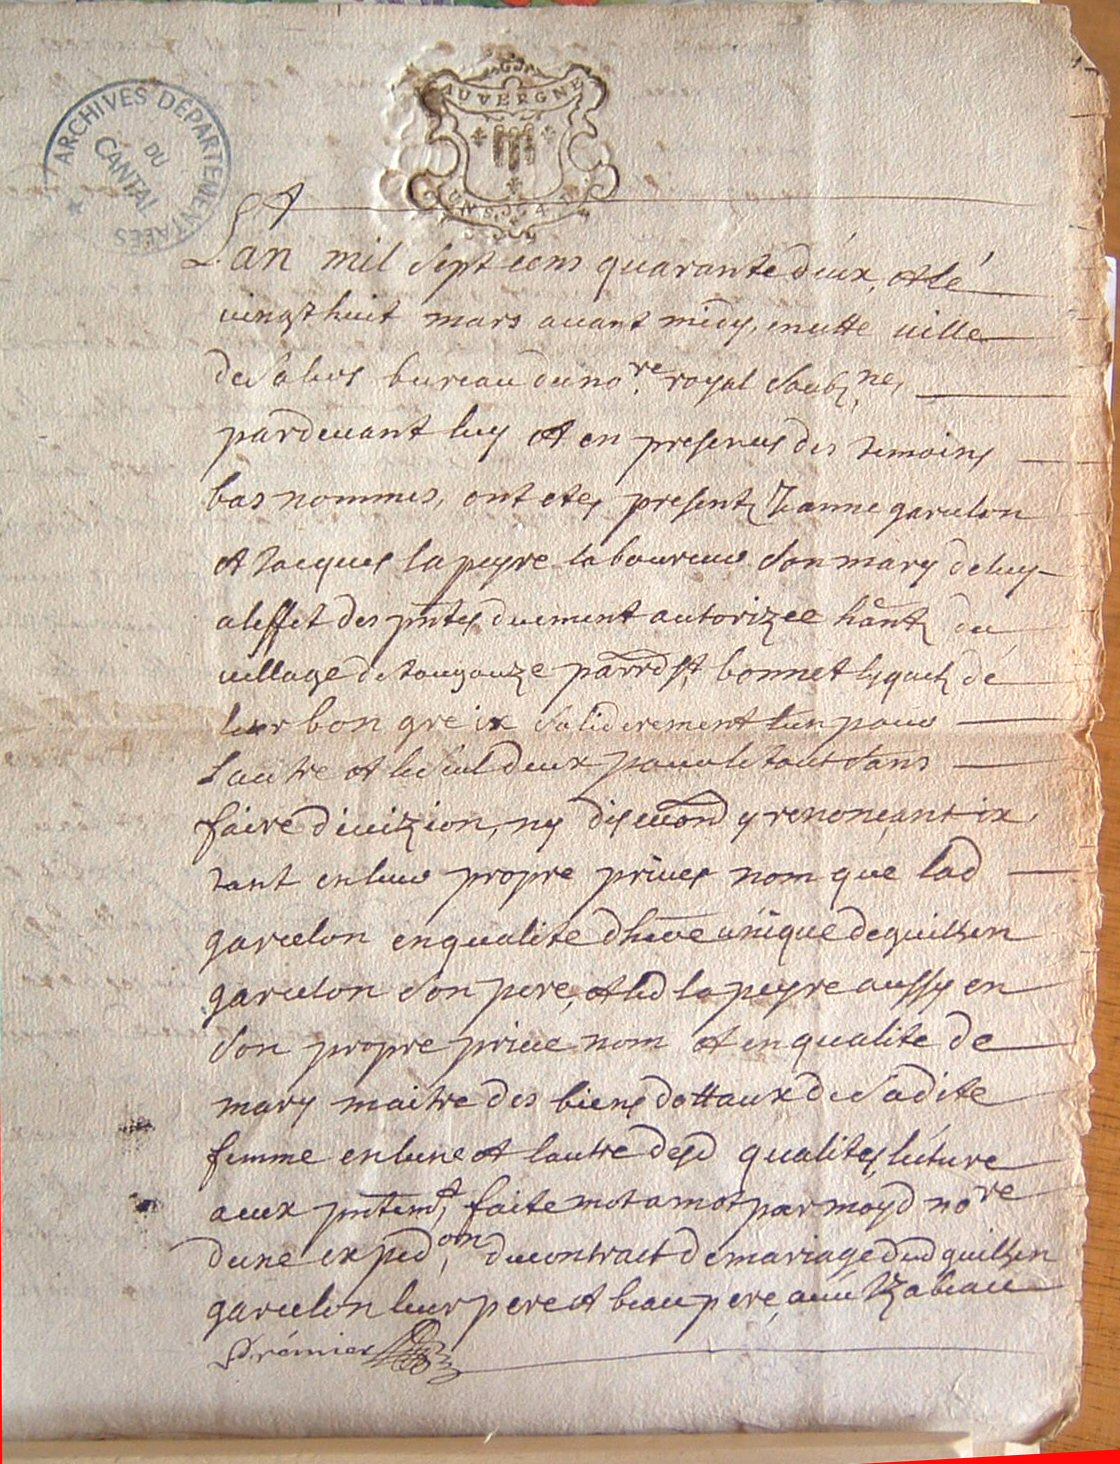 ARCHIVES DÉPARTEMENTALES
DU
CANTAL
AUVERGNE
Lan mil sept cens quarante deux, et le
vingt huit mars avant midy, en cette ville
de Salers bureau du no.re royal soubz.ne,
pardevant luy et en presences des temoins
bas nommes, ont etes presentz Jeanne garcelon
et Jacques lapeyre laboureur son mary de luy
a leffet des pntes duement autorizee hantz du
village de parrd St bonnet lesquelz de
leur bon gre ix soliderement lun pour
lautre et le seul deux pour le tout sans
faire divizion, ny discuon y renonçant ix
tant en leur propre prives nom que lad
garcelon en qualite dhere unique de guilhen
garcelon son pere, et led lapeyre aussy en
son propre prive nom et en qualite de
mary maitre des biens dottaux de sadite
femme en lune et lautre desd qualites lecture
aux pntemt, faite mot a mot par moyd no.re
dune expedon, du contract de mariage dud guilhen
garcelon leur pere et beau pere, avec Izabeau
Premier